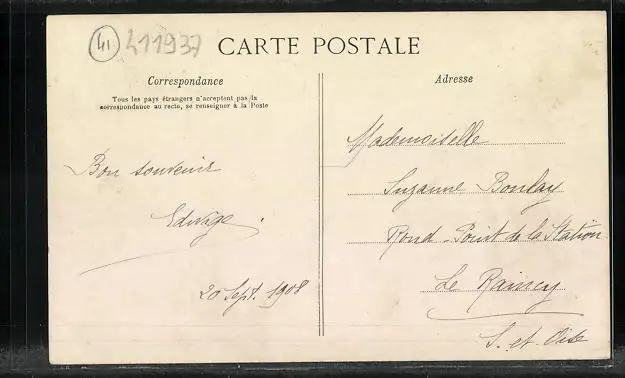 41 411937
CARTE POSTALE
Correspondance
Tous les pays étrangers n'acceptent pas la
correspondance au recto, se renseigner à la Poste
Bon souvenir
Edwige.
20 Sept. 1908
Adresse
Mademoiselle
Suzanne Boulay
Rond-Point de la Station
Le Raincy
S. et Oise